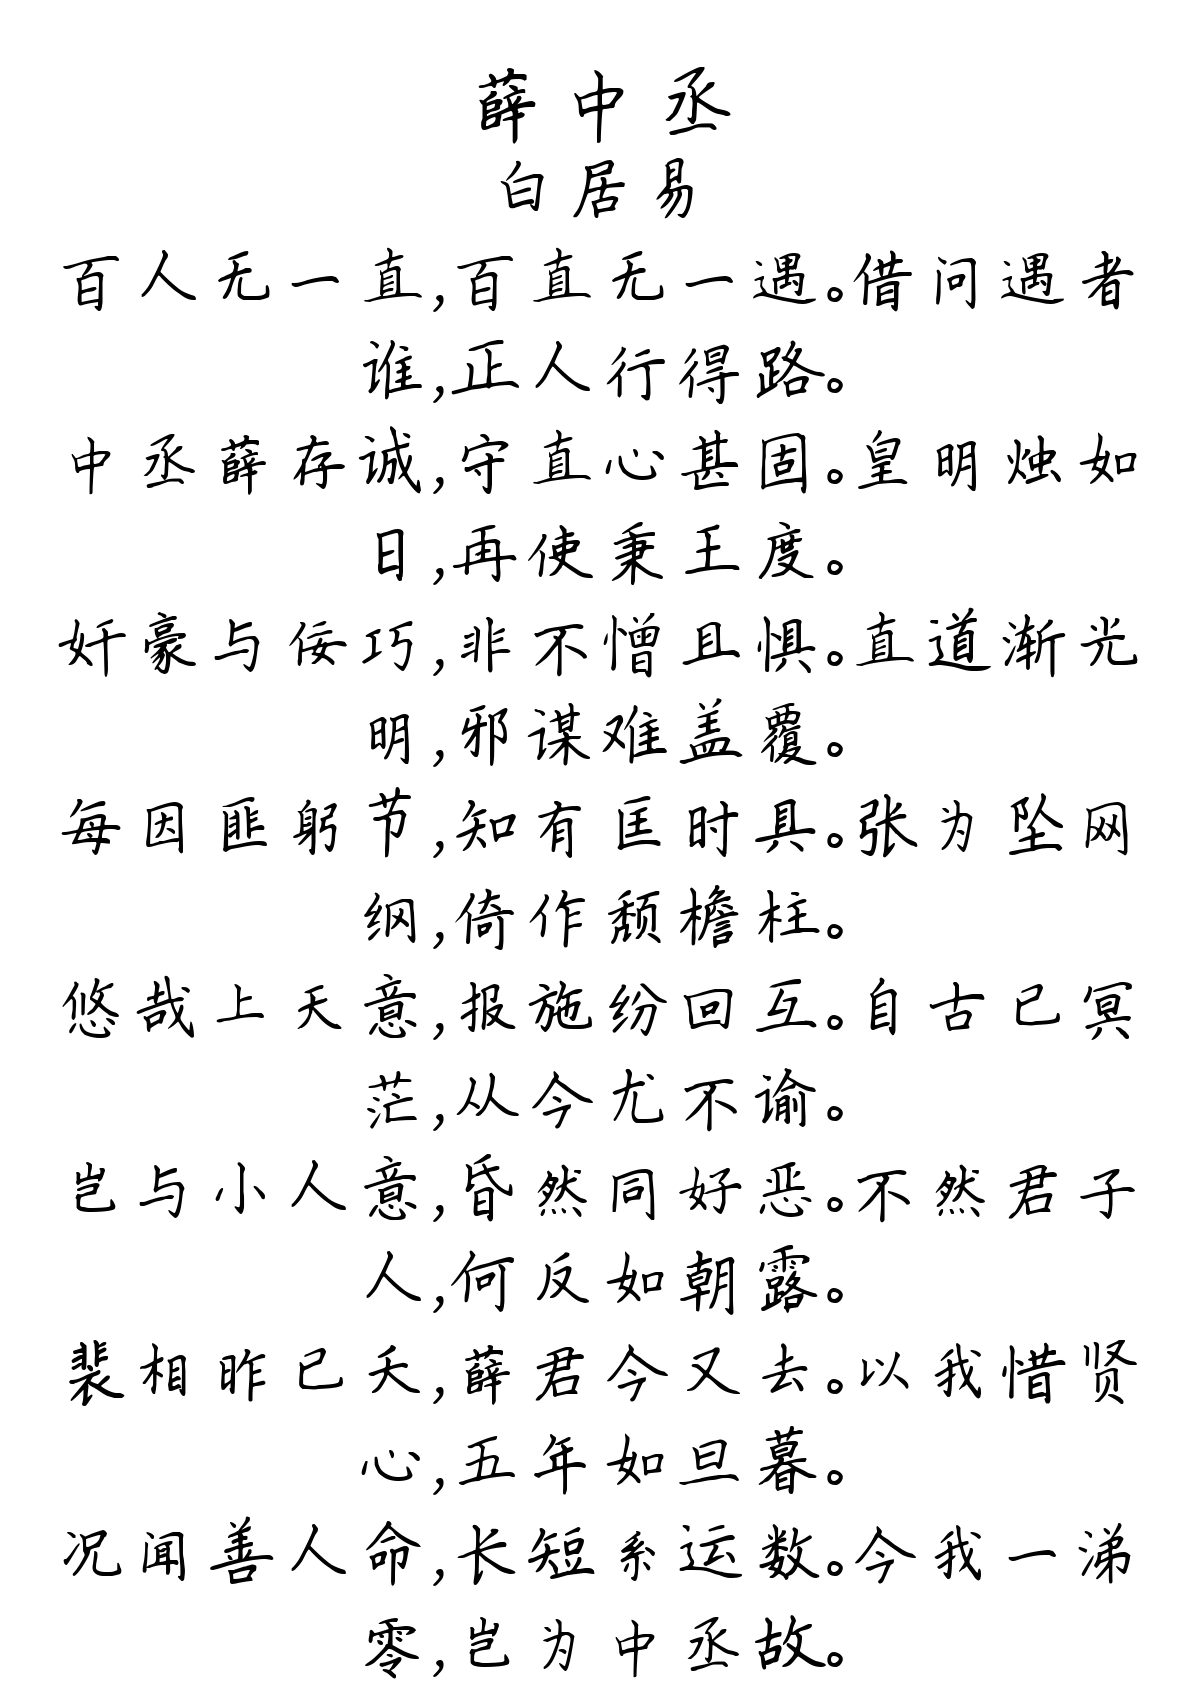 薛中丞
白居易
百人无一直,百直无一遇。借问遇者
谁,正人行得路。
中丞薛存诚,守直心甚固。皇明烛如
日,再使秉王度。
奸豪与佞巧,非不憎且惧。直道渐光
明,邪谋难盖覆。
每因匪躬节,知有匡时具。张为坠网
纲,倚作颓檐柱。
悠哉上天意,报施纷回互。自古已冥
茫,从今尤不谕。
岂与小人意,昏然同好恶。不然君子
人,何反如朝露。
裴相昨已夭,薛君今又去。以我惜贤
心,五年如旦暮。
况闻善人命,长短系运数。今我一涕
零,岂为中丞故。